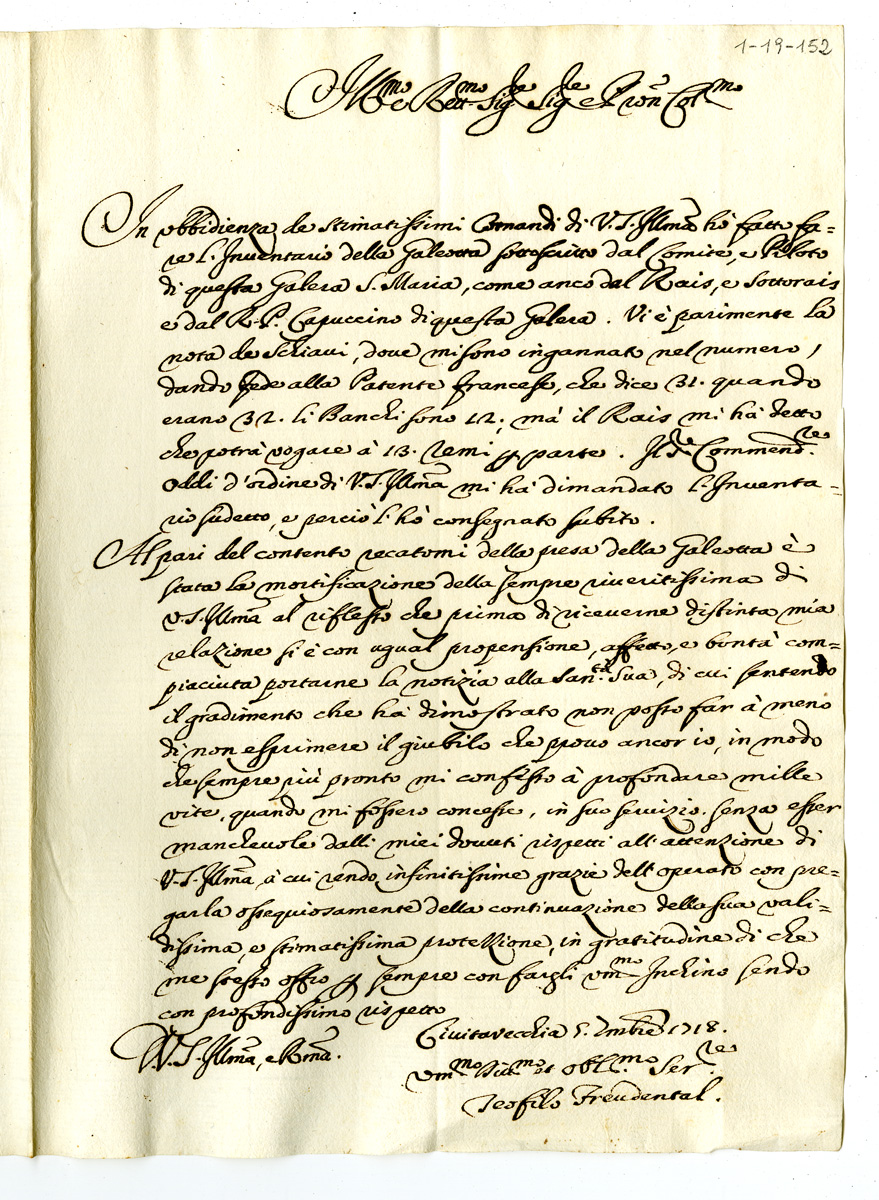 1-19-152
Ill.mo e Rev.mo Sig.re Sig.re e P.ron Col.mo
In obbidienza de stimatissimi Comandi di V. S. Illma hò fatto fa=
re l'Inventario della Galeotta sottoscritto dal Comite, e Piloto
di questa Galera S. Maria, come anco dal Rais, e Sottorais
e dal R. P. Capuccino di questa Galera. Vi è parimente la
nota de Schiavi, dove mi sono ingannato nel numero,
dando fede alla Patente francese, che dice 31. quando
erano 32. li Banchi sono 12; mà il Rais mi hà detto
che potrà vogare à 13. remi p parte. Il S.re Commend.re
Oddi d'ordine di V. S. Illma mi hà dimandato l'Inventa=
rio sudetto, e perciò l'hò consegnato subito.
Al pari del contento recatomi della presa della Galeotta è
stata la mortificazione della sempre riveritissima di
V. S. Illma al riflesso che prima di riceverne distinta mia
relazione si è con ugual propensione, affetto, e bontà com=
piaciuta portarne la notizia alla San.tà Sua, di cui sentendo
il gradimento che hà dimostrato non posso far à meno
di non esprimere il giubilo che provo ancor io, in modo
che sempre più pronto mi confesso à profondare mille
vite, quando mi fossero concesse, in suo servizio. senza esser
manchevole dalli miei dovuti rispetti all'attenzione di
V. S. Illma, à cui rendo infinitissime grazie dell'operato con pre=
garla ossequiosamente della continuazione della sua vali=
dissima, e stimatissima protezzione, in gratitudine di che
me stesso offro p sempre con fargli um.mo Inchino sendo
con profondissimo rispetto
Civitavecchia 5. Zmbre 1718.
D V. S. Illma, e Rma.
um.mo et obbl.mo Ser.re
Teofilo Freudental.